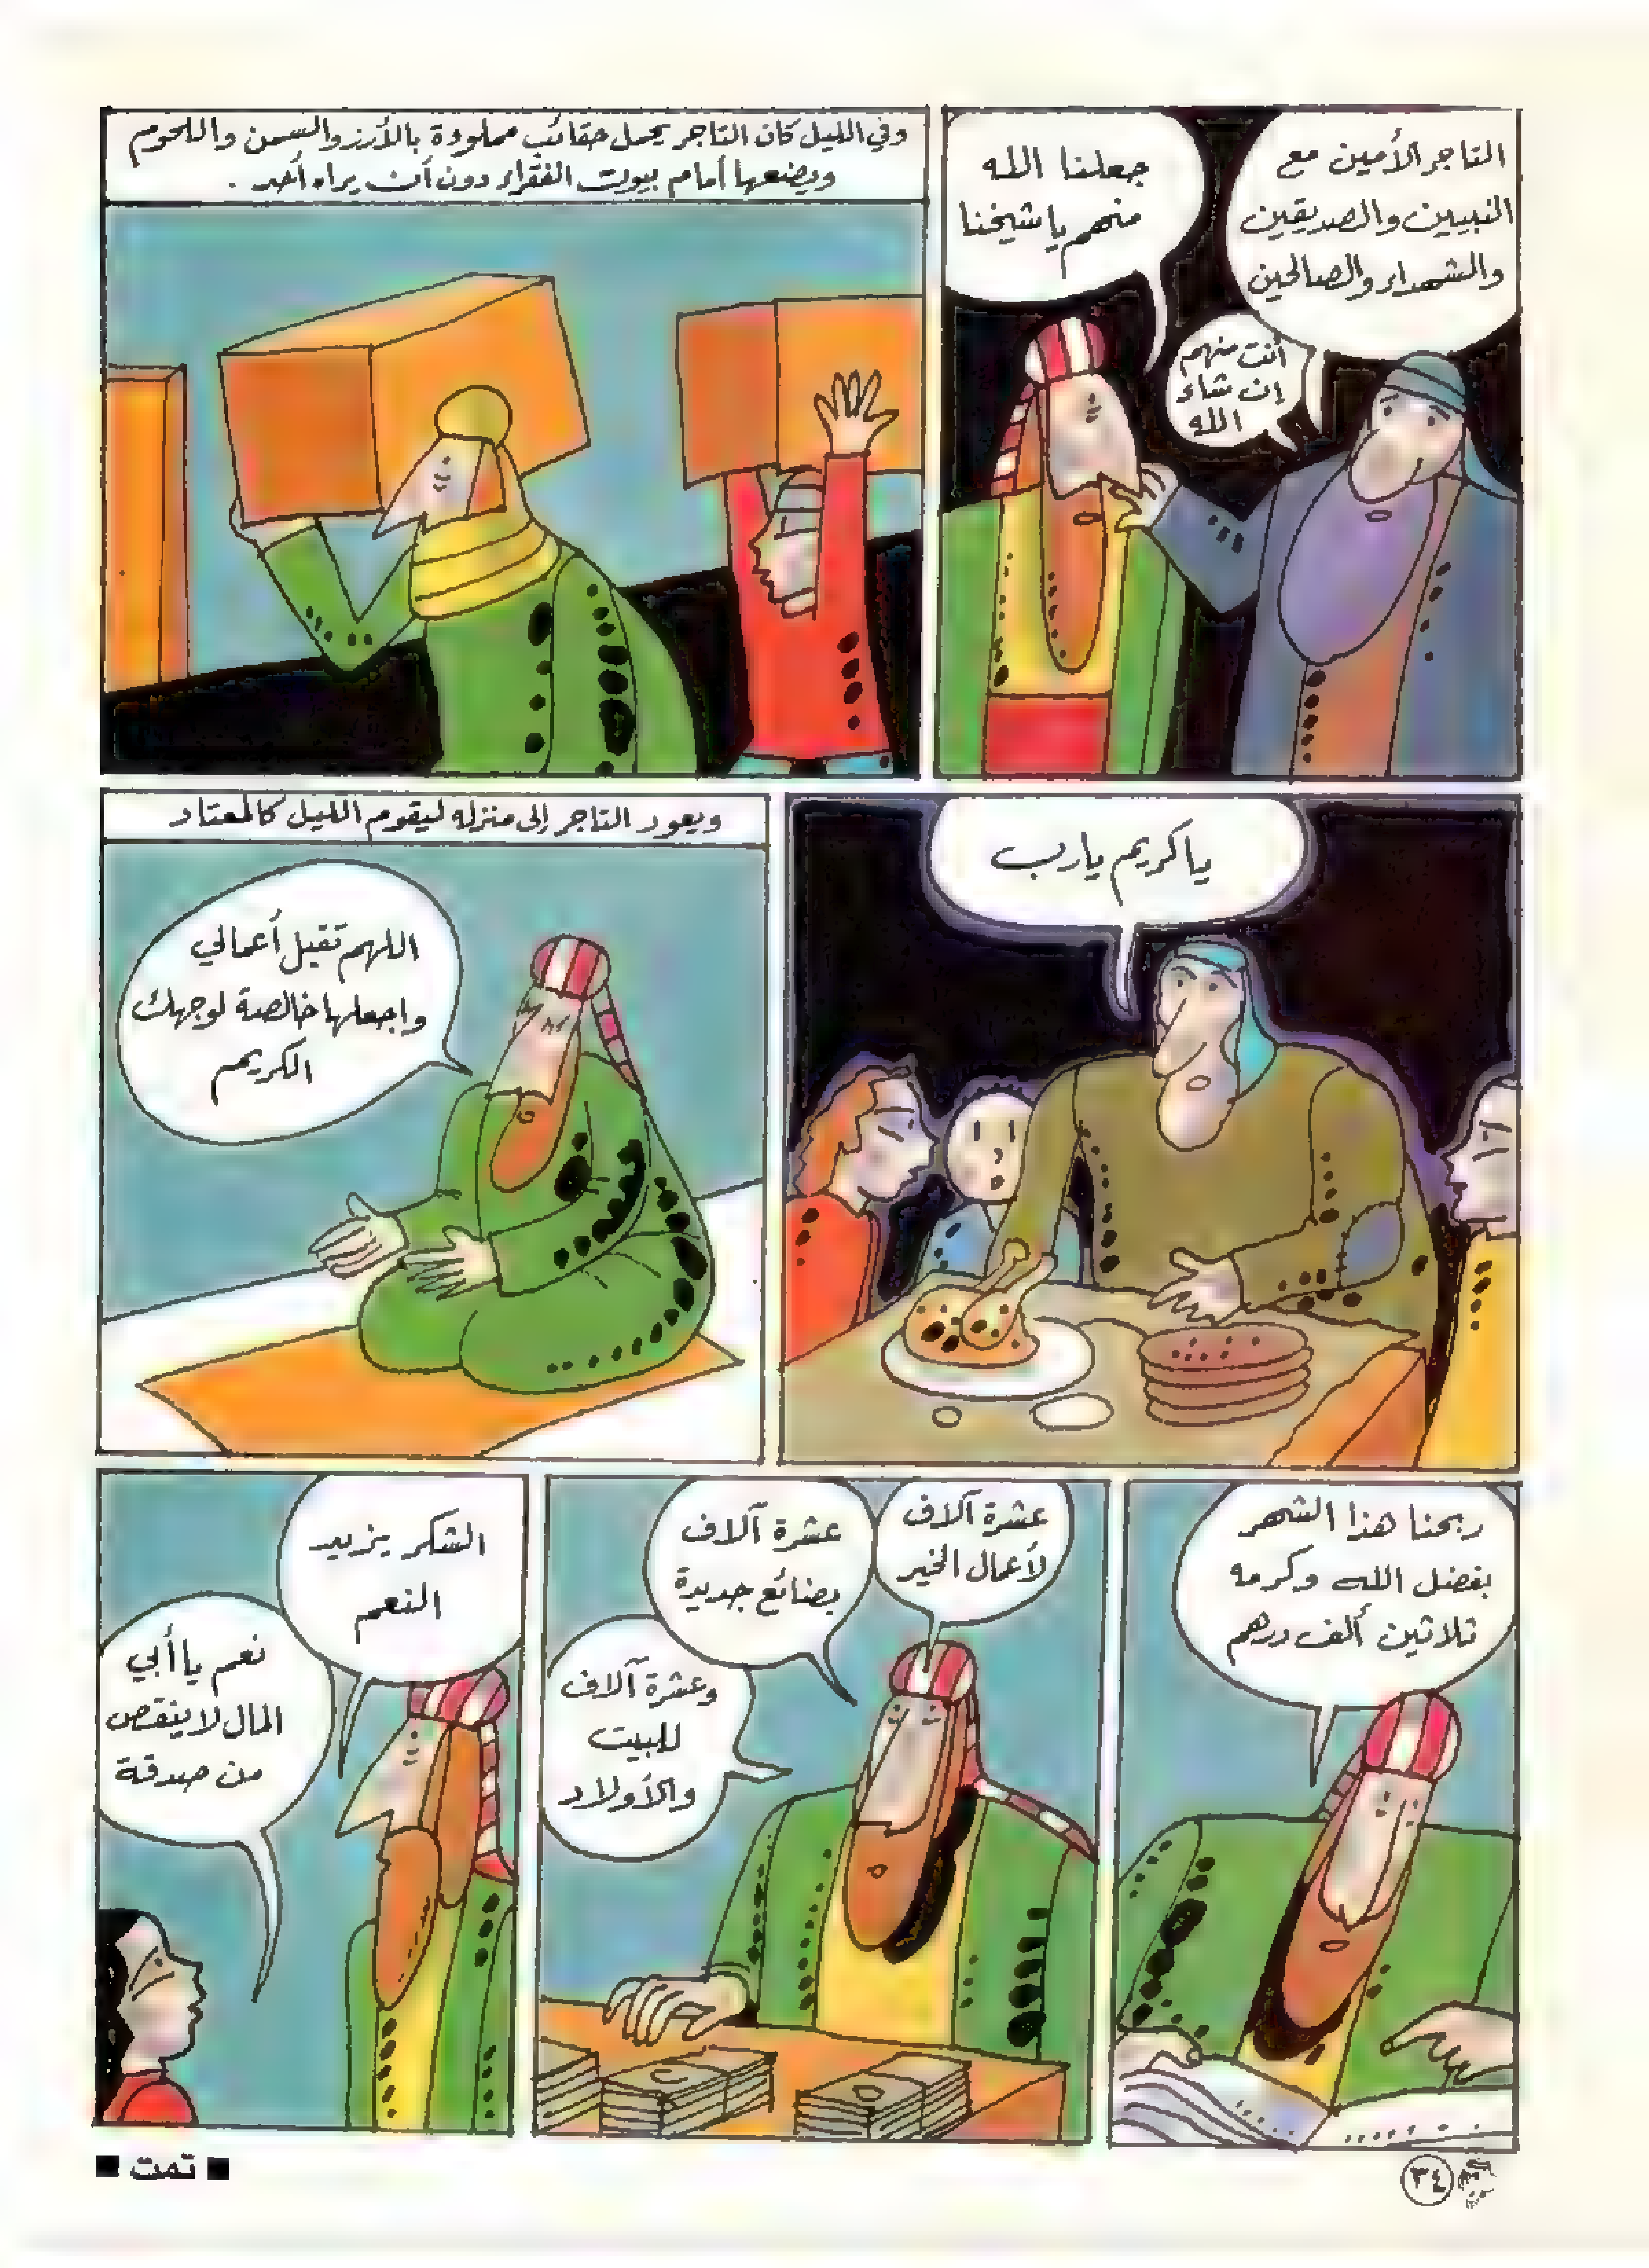 التاجر الأمين مع
النبيين والصديقين
والشهداء والصالحين
جعلنا الله
منهم ياشيخنا
أنت منهم
إن شاء
الله
وفي الليل كان التاجر يحمل حقائب مملوءة بالأرز والسمن واللحوم
ويضعها أمام بيوت الفقراء دون أن يراه أحد .
ياكريم يارب
ويعود التاجر إلى منزله ليقوم الليل كالمعتاد
اللهم تقبل أعمالي
واجعلها خالصة لوجهك
الكريم
ربحنا هذا الشهر
بفضل الله وكرمه
ثلاثين ألف درهم
عشرة آلاف
لأعمال الخير
عشرة آلاف
بضائع جديدة
وعشرة آلاف
للبيت
والأولاد
الشكر يزيد
النعم
نعم يا أبي
المال لا ينقص
من صدقة
٣٤
■ تمت ■